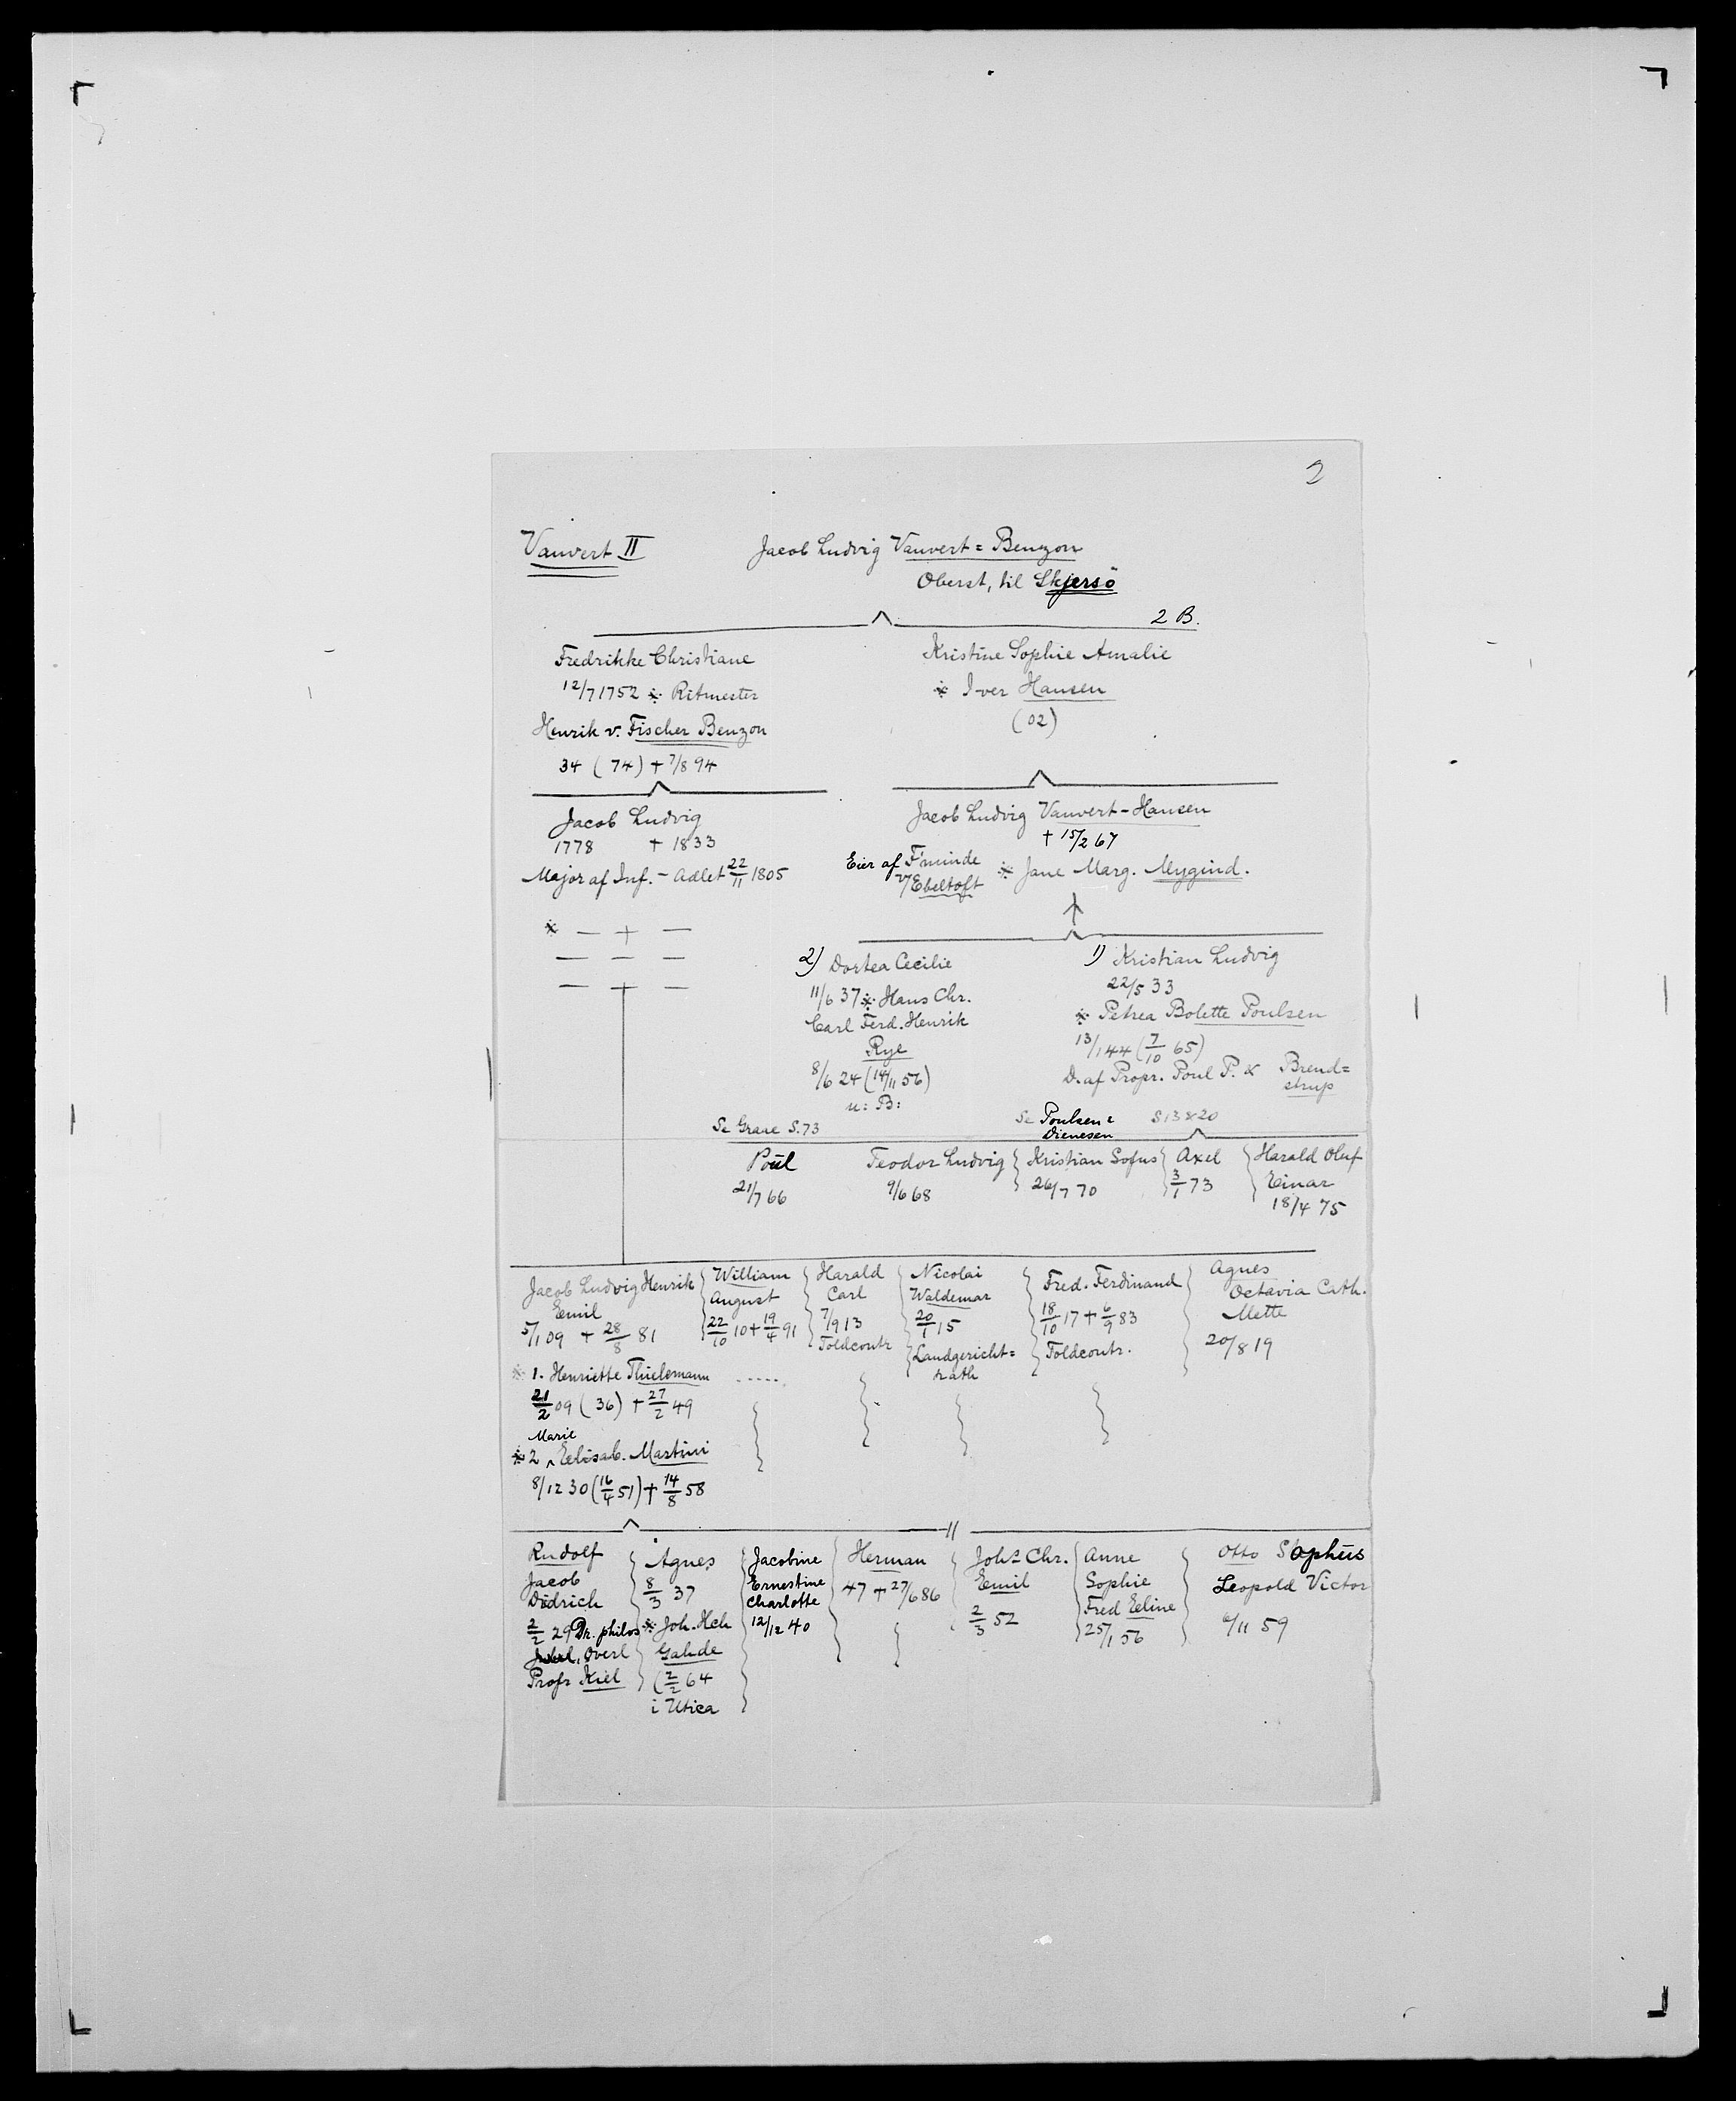 2
Vauvert II
Jacob Ludvig Vauvert=Benzon
Oberst, til Skjersö
2 B.
Fredrikke Christiane
12/7 1752 ※ Ritmester
Henrik v. Fischer Benzon
34 (74) + 7/8 94
Kristine Sophie Amalie
※ Iver Hansen
(02)
Jacob Ludvig
1778 + 1833
Major af Inf. - Adlet 22/11 1805
Jacob Ludvig Vauvert-Hansen
+ 15/2 67
Eier af F'minde
v/Ebeltoft
※ Jane Marg. Mygind.
※ — + —
— — —
— — —
2) Dortea Cecilie
11/6 37 ※ Hans Chr.
Carl Ferd. Henrik
Rye
8/6 24 (14/11 56)
u: B:
Se Grave S. 73
1) Kristian Ludvig
22/5 33
※ Petrea Bolette Poulsen
13/1 44 (7/10 65)
D. af Propr. Poul P. & Brend=
strup
Se Poulsen=
Dienesen
S 13 & 20
Poul
21/7 66
Teodor Ludvig
9/6 68
Kristian Sofus
26/7 70
Axel
3/1 73
Harald Oluf
Einar
18/4 75
Jacob Ludvig Henrik
Emil
5/1 09 + 28/8 81
William
August
22/10 10 + 19/4 91
Harald
Carl
7/9 13
Toldcontr
Nicolai
Waldemar
20/1 15
Landgericht=
rath
Fred. Ferdinand
18/10 17 + 6/9 83
Toldcontr.
Agnes
Octavia Cath.
Mette
20/8 19
※ 1. Henriette Thielemann .....
21/2 09 (36) + 27/2 49
Marie
※ 2 ^ Elisab. Martini
8/12 30 (16/4 51) + 14/8 58
Rudolf
Jacob
Didrich
2/2 29 Dr. philos
Overl
Profr Kiel
Agnes
8/3 37
※ Joh. Hch
Gahde
(2/2 64
i Utica
Jacobine
Ernestine
Charlotte
12/12 40
Herman
47 + 27/6 86
Johs Chr.
Emil
2/3 52
Anne
Sophie
Fred Eline
25/1 56
Otto Sophus
Leopold Victor
6/11 59